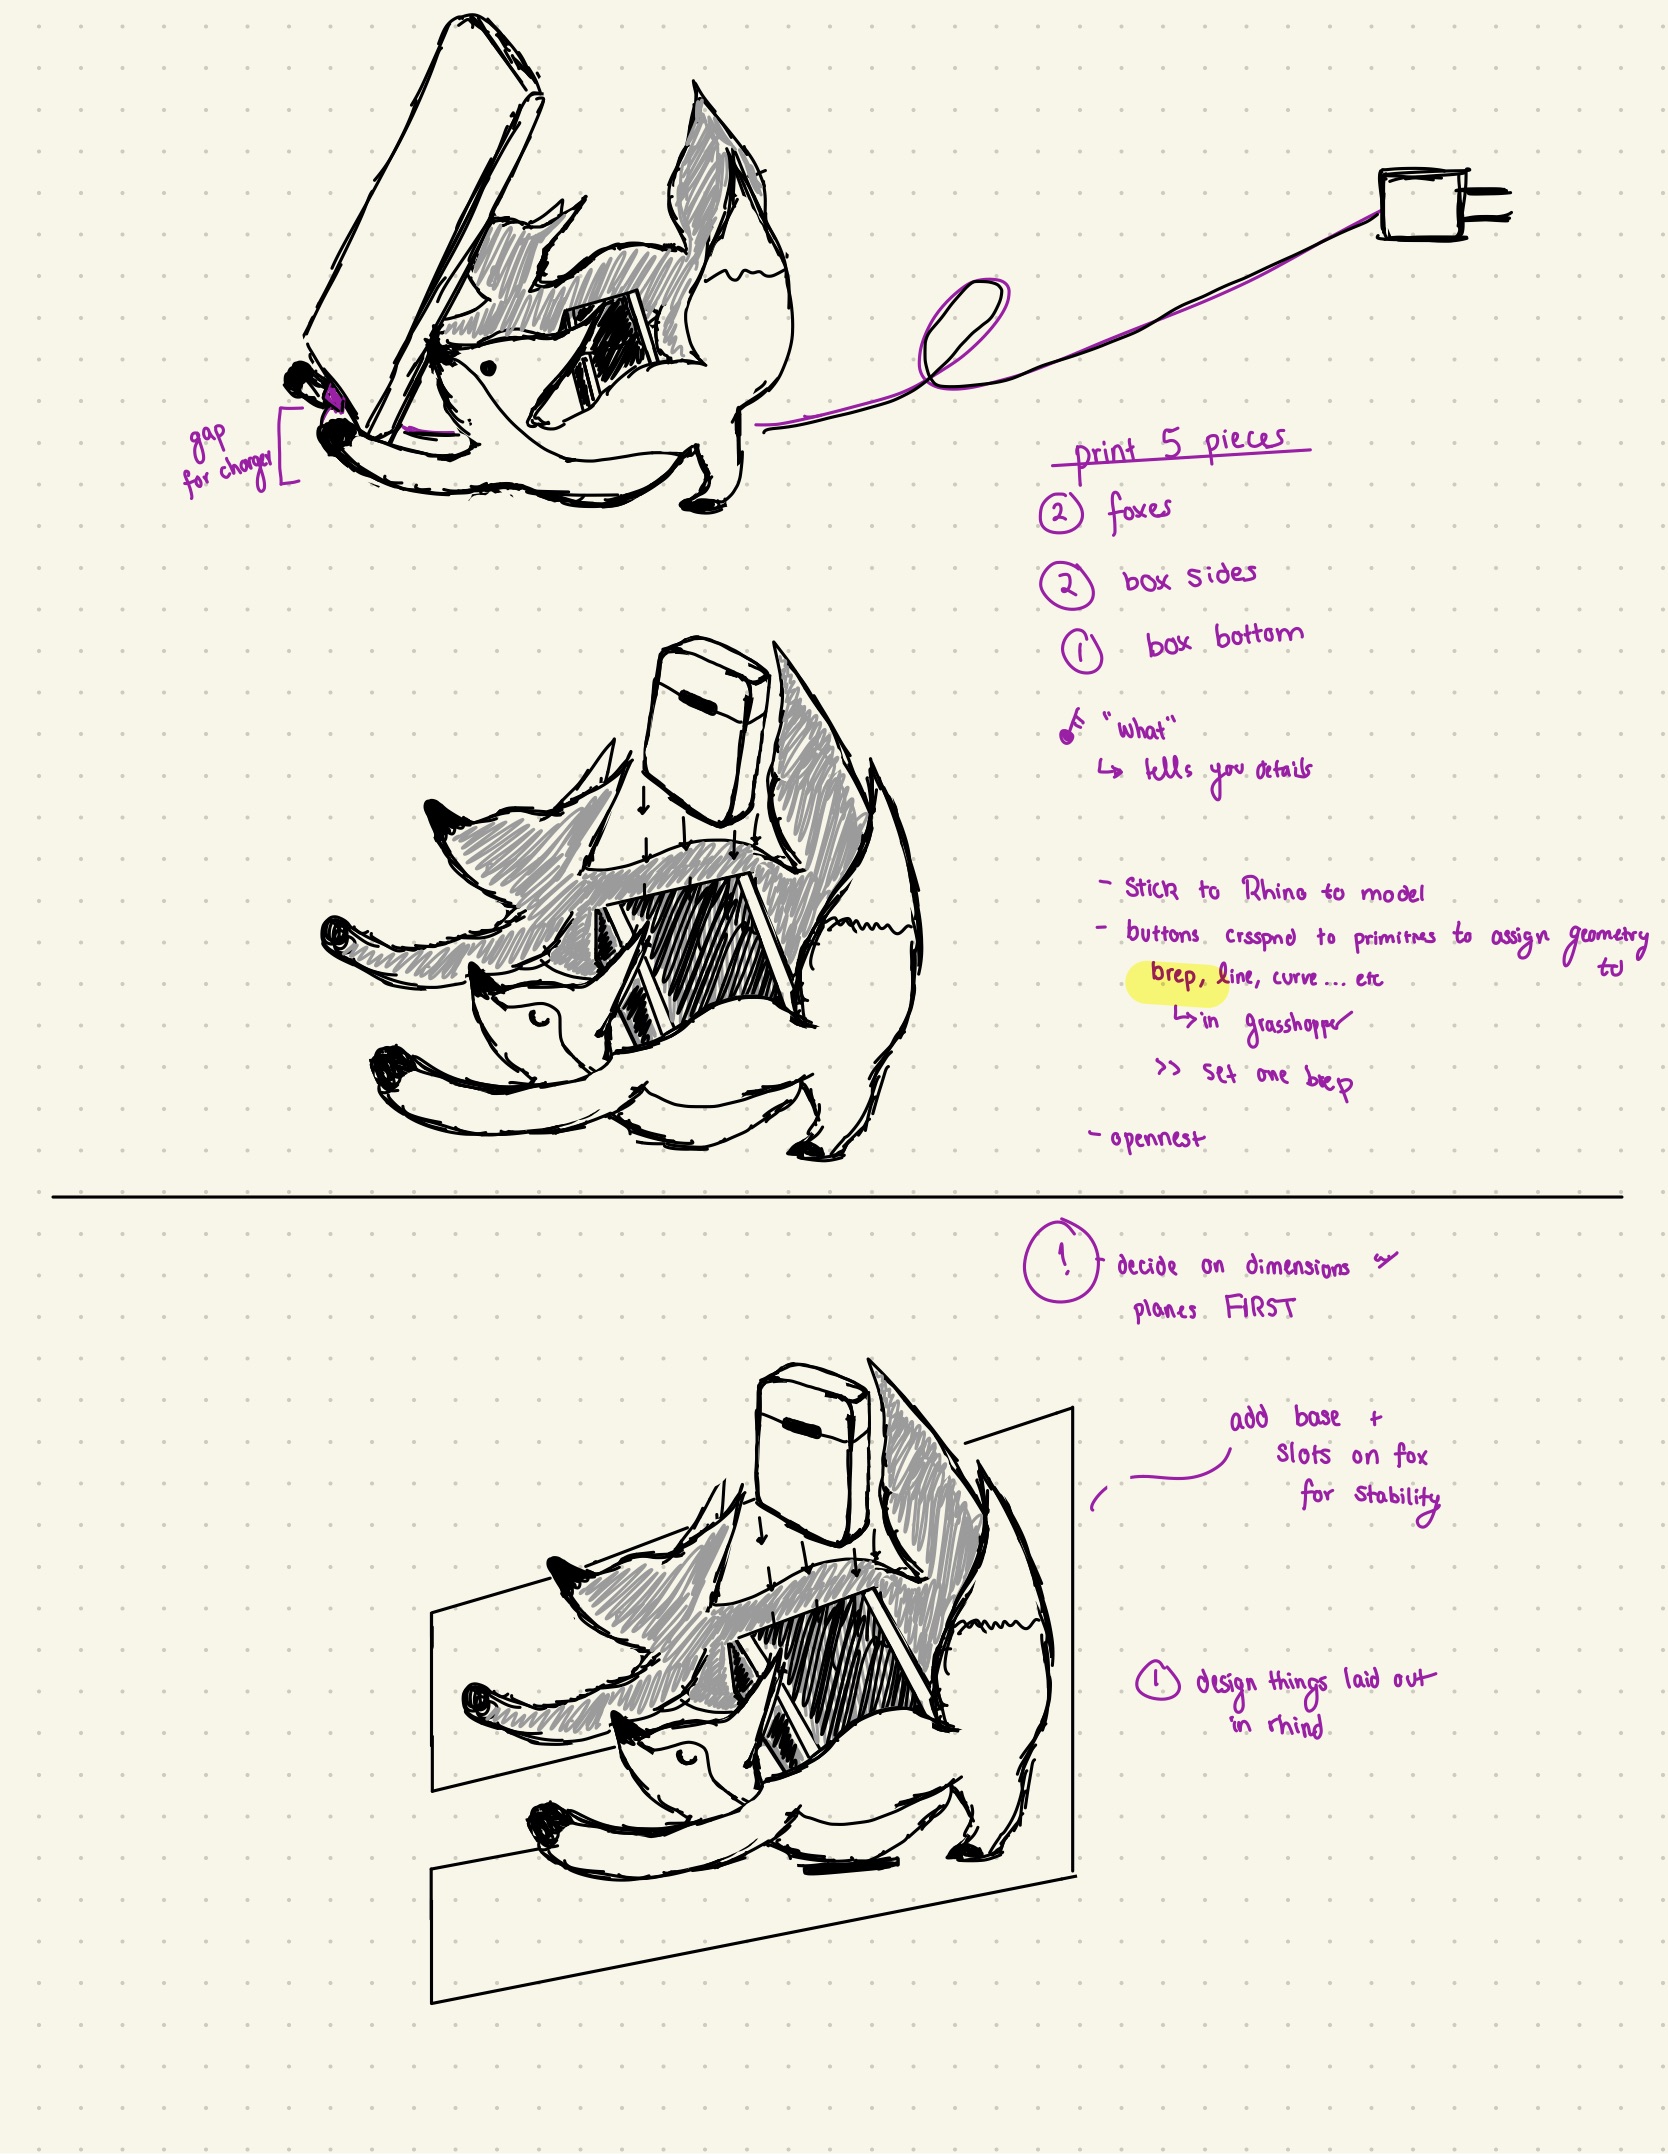 gap
for charger
print 5 pieces
2 foxes
2 box sides
1 box bottom
"what"
↳ tells you details
- Stick to Rhino to model
- buttons crsspnd to primitives to assign geometry to
brep, line, curve... etc
↳ in grasshopper
>> set one brep
- opennest
! - decide on dimensions
planes FIRST
add base +
slots on fox
for stability
1 design things laid out
in rhino